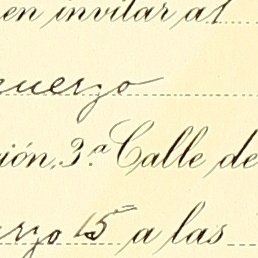 en invitar al
uerzo
ión, 3.ª Calle de
rzo 15 a las